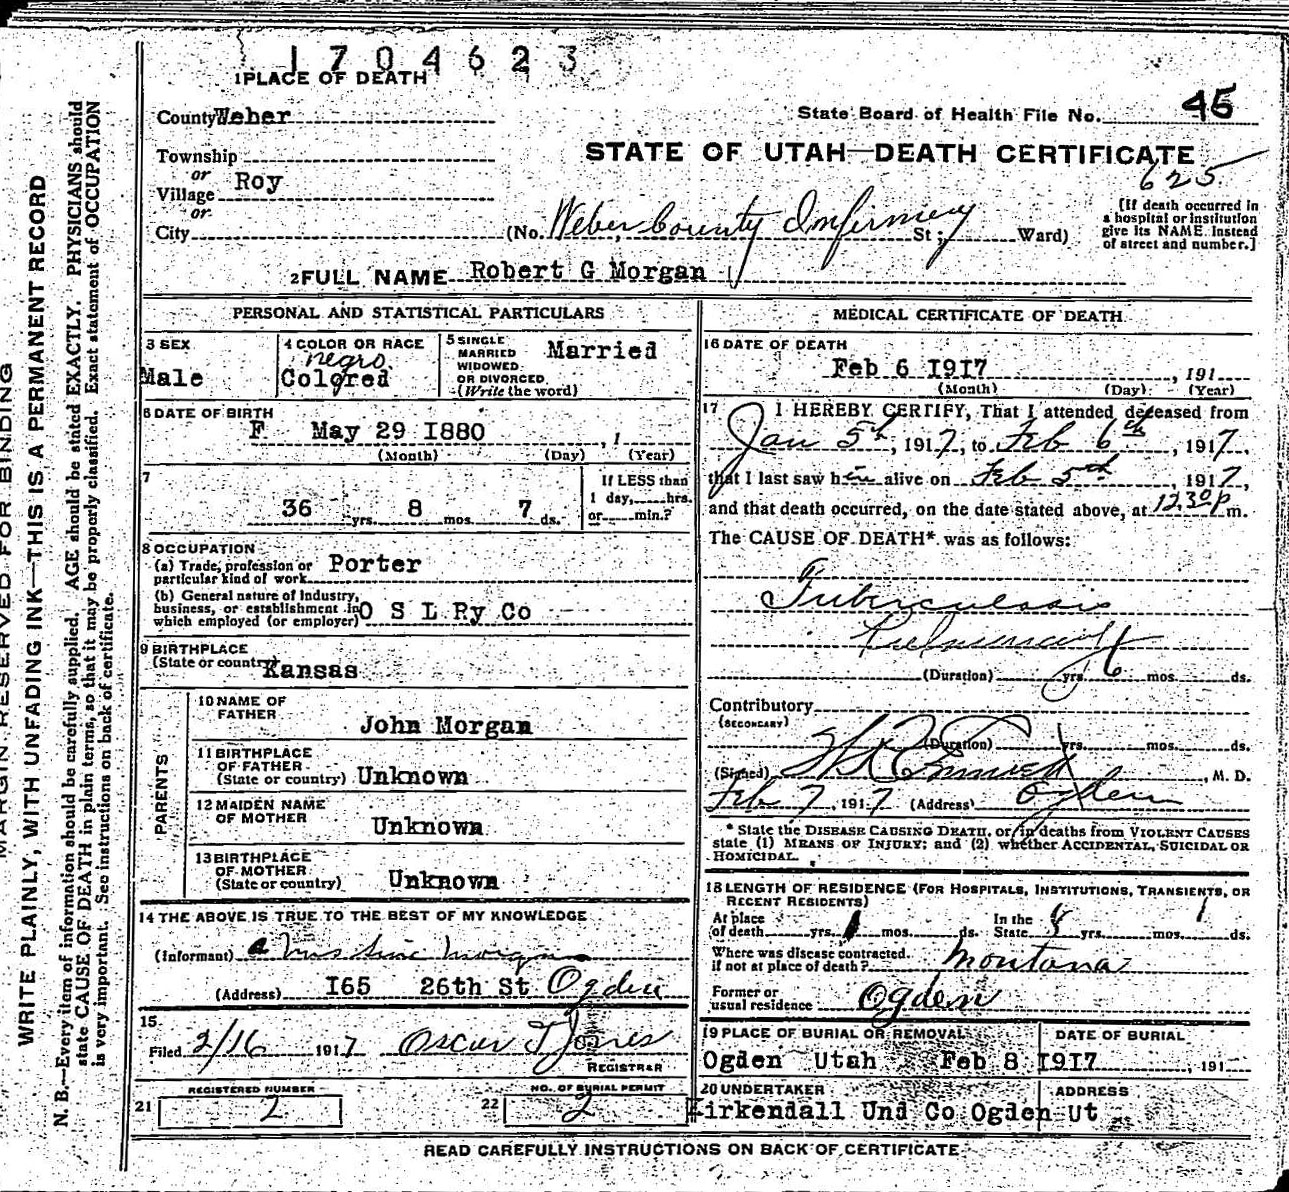 1704623
1 PLACE OF DEATH
County Weber
State Board of Health File No. 45
Township
or
Village Roy
or
City
STATE OF UTAH—DEATH CERTIFICATE
625
(No. Weber County Infirmery St; Ward)
[If death occurred in
a hospital or institution
give its NAME instead
of street and number.]
2 FULL NAME Robert G Morgan
PERSONAL AND STATISTICAL PARTICULARS
3 SEX
Male
4 COLOR OR RACE
negro
Colored
5 SINGLE
MARRIED
WIDOWED
OR DIVORCED
(Write the word)
Married
6 DATE OF BIRTH
F May 29 I880 , 1
(Month) (Day) (Year)
7
36 yrs. 8 mos. 7 ds.
If LESS than
1 day, hrs.
or min.?
8 OCCUPATION
(a) Trade, profession or
particular kind of work Porter
(b) General nature of Industry,
business, or establishment in
which employed (or employer) O S L Ry Co
9 BIRTHPLACE
(State or country) Kansas
PARENTS
10 NAME OF
FATHER
John Morgan
11 BIRTHPLACE
OF FATHER
(State or country) Unknown
12 MAIDEN NAME
OF MOTHER
Unknown
13 BIRTHPLACE
OF MOTHER
(State or country) Unknown
14 THE ABOVE IS TRUE TO THE BEST OF MY KNOWLEDGE
(Informant) Morgan
(Address) I65 26th St Ogden
15
Filed 2/16 1917 Oscar T Jones
REGISTRAR
REGISTERED NUMBER
21 2
NO. OF BURIAL PERMIT
22 2
MEDICAL CERTIFICATE OF DEATH
16 DATE OF DEATH
Feb 6 I9I7 , 191
(Month) (Day) (Year)
17 I HEREBY CERTIFY, That I attended deceased from
Jan 5th, 1917, to Feb 6th, 1917,
that I last saw him alive on Feb 5th, 1917,
and that death occurred, on the date stated above, at 12.30 P m.
The CAUSE OF DEATH* was as follows:
Tuberculosis
Pulmunary
(Duration) yrs. 6 mos. ds.
Contributory
(SECONDARY)
(Duration) yrs. mos. ds.
(Signed) , M. D.
Feb 7, 1917 (Address) Ogden
* State the DISEASE CAUSING DEATH, or, in deaths from VIOLENT CAUSES
state (1) MEANS OF INJURY; and (2) whether ACCIDENTAL, SUICIDAL OR
HOMICIDAL.
18 LENGTH OF RESIDENCE (FOR HOSPITALS, INSTITUTIONS, TRANSIENTS, OR
RECENT RESIDENTS)
At place
of death yrs. 1 mos. ds.
In the
State yrs. mos. ds.
Where was disease contracted,
if not at place of death? Montana
Former or
usual residence Ogden
19 PLACE OF BURIAL OR REMOVAL
Ogden Utah
DATE OF BURIAL
Feb 8 I9I7 , 191
20 UNDERTAKER
Kirkendall Und Co
ADDRESS
Ogden Ut
READ CAREFULLY INSTRUCTIONS ON BACK OF CERTIFICATE
MARGIN RESERVED FOR BINDING
WRITE PLAINLY, WITH UNFADING INK—THIS IS A PERMANENT RECORD
N. B.—Every item of information should be carefully supplied. AGE should be stated EXACTLY. PHYSICIANS should
state CAUSE OF DEATH in plain terms, so that it may be properly classified. Exact statement of OCCUPATION
is very important. See instructions on back of certificate.